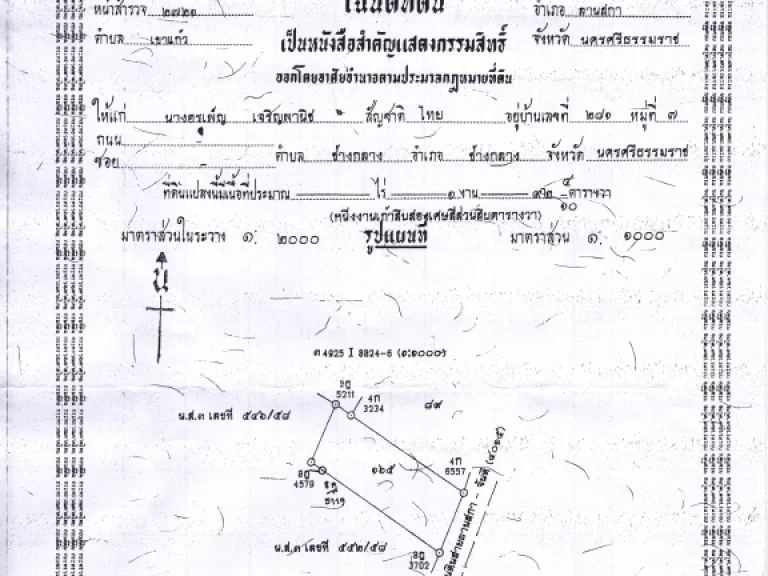 หน้าสำรวจ ๒๗๒๑
โฉนดที่ดิน
อำเภอ ลานสกา
ตำบล เขาแก้ว
เป็นหนังสือสำคัญแสดงกรรมสิทธิ์
จังหวัด นครศรีธรรมราช
ออกโดยอาศัยอำนาจตามประมวลกฎหมายที่ดิน
ให้แก่ นางอรเพ็ญ เจริญพานิช สัญชาติ ไทย อยู่บ้านเลขที่ ๒๘๑ หมู่ที่ ๗
ถนน -
ซอย - ตำบล ช้างกลาง อำเภอ ช้างกลาง จังหวัด นครศรีธรรมราช
ที่ดินแปลงนี้มีเนื้อที่ประมาณ ไร่ ๑ งาน ๙๒ ๔/๑๐ ตารางวา
(หนึ่งงานเก้าสิบสองเศษสี่ส่วนสิบตารางวา)
มาตราส่วนในระวาง ๑: ๒๐๐๐
รูปแผนที่
มาตราส่วน ๑: ๑๐๐๐
น
4925 I 8824-6 (๑:๑๐๐๐)
5211
4ก
3234
๘๙
น.ส.๓ เลขที่ ๕๔๖/๕๘
๑๖๕
4ก
6557
4579
น.ส.๓ เลขที่ ๕๕๒/๕๘
3702
ลานสกา - จันดี (๔๐๑๕)